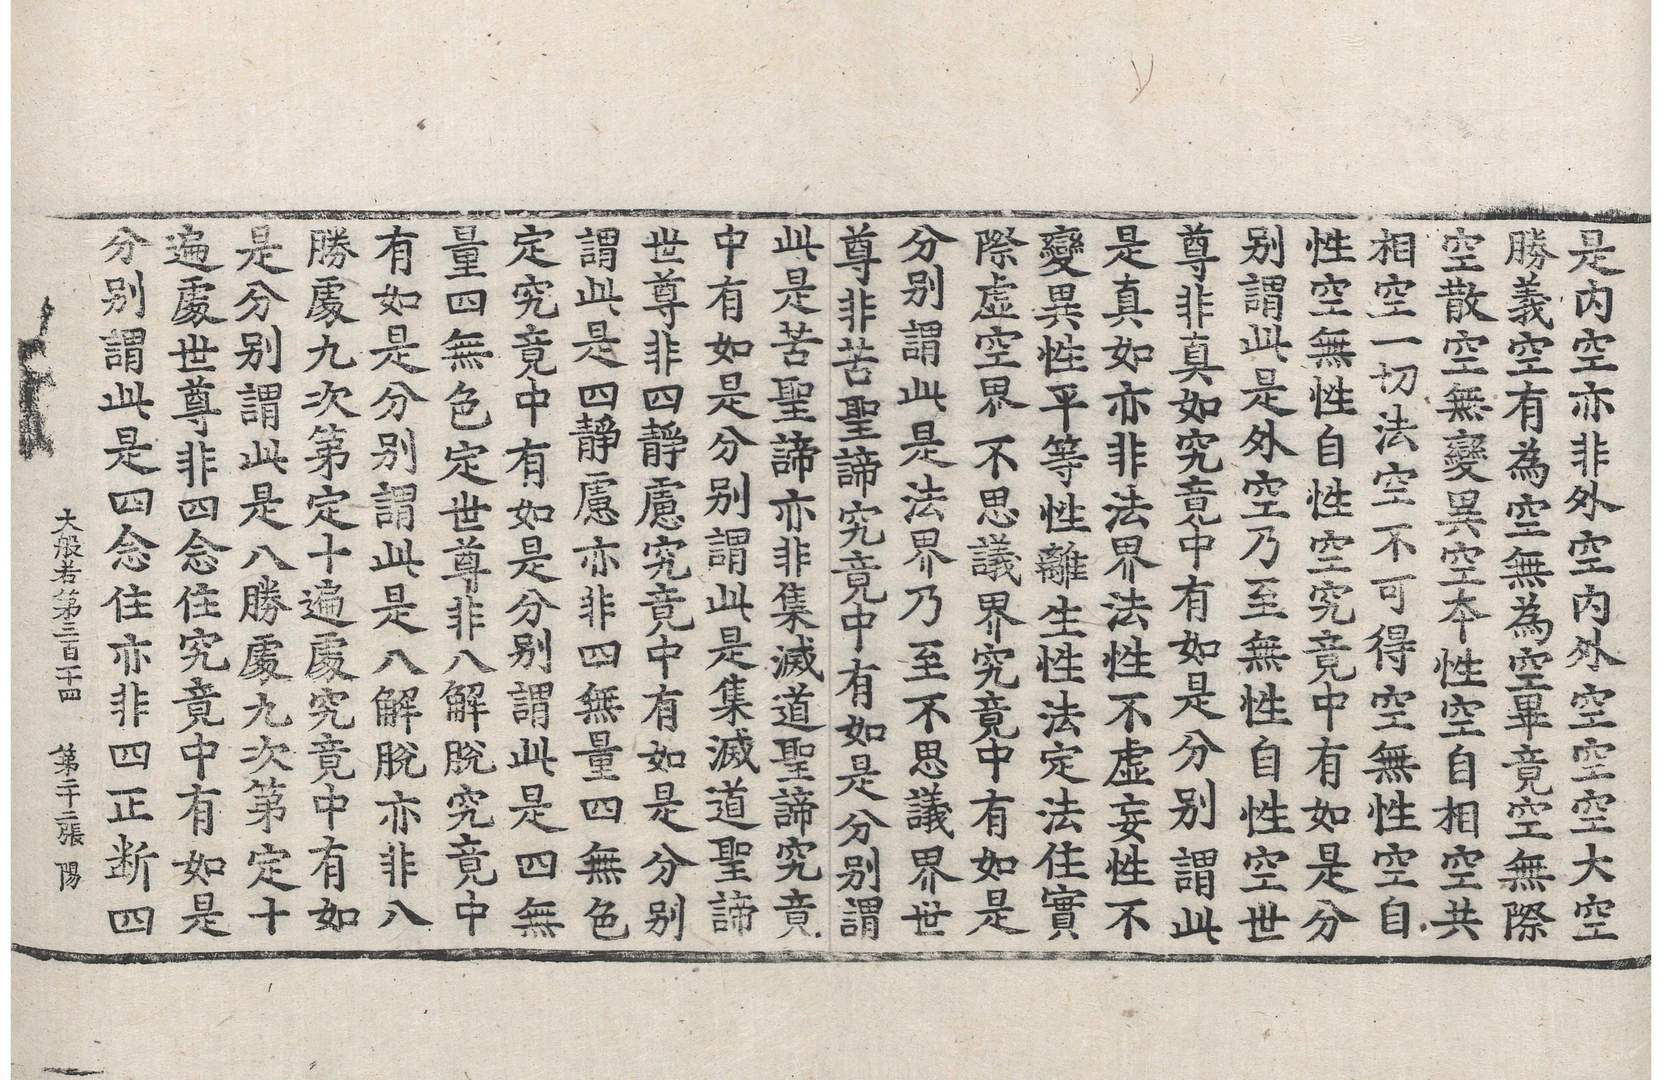 是內空亦非外空內外空空空大空
勝義空有為空無為空畢竟空無際
空散空無變異空本性空自相空共
相空一切法空不可得空無性空自
性空無性自性空究竟中有如是分
别謂此是外空乃至無性自性空世
尊非真如究竟中有如是分别謂此
是真如亦非法界法性不虛妄性不
變異性平等性離生性法定法住實
際虛空界不思議界究竟中有如是
分别謂此是法界乃至不思議界世
尊非苦聖諦究竟中有如是分别謂
此是苦聖諦亦非集滅道聖諦究竟
中有如是分别謂此是集滅道聖諦
世尊非四靜慮究竟中有如是分别
謂此是四靜慮亦非四無量四無色
定究竟中有如是分别謂此是四無
量四無色定世尊非八解脫究竟中
有如是分别謂此是八解脫亦非八
勝處九次第定十遍處究竟中有如
是分别謂此是八勝處九次第定十
遍處世尊非四念住究竟中有如是
分别謂此是四念住亦非四正断四
大般若第三百二十四 第二十二張 陽